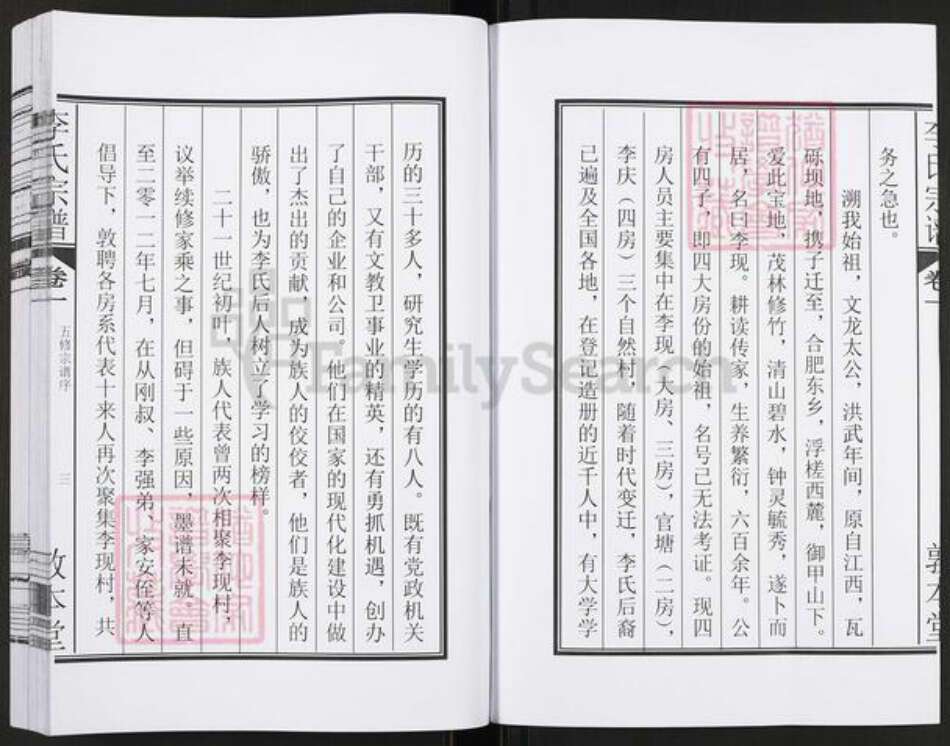 务之急也。
溯我始祖，文龙太公，洪武年间，原自江西，瓦
砾坝地，携子迁至，合肥东乡，浮槎西麓，御甲山下。
爱此宝地，茂林修竹，清山碧水，钟灵毓秀，遂卜而
居，名曰李现。耕读传家，生养繁衍，六百余年。公
有四子，即四大房份的始祖，名号已无法考证。现四
房人员主要集中在李现（大房、三房），官塘（二房），
李庆（四房）三个自然村，随着时代变迁，李氏后裔
已遍及全国各地，在登记造册的近千人中，有大学学
历的三十多人，研究生学历的有八人。既有党政机关
干部，又有文教卫事业的精英，还有勇抓机遇，创办
了自己的企业和公司。他们在国家的现代化建设中做
出了杰出的贡献，成为族人的佼佼者，他们是族人的
骄傲，也为李氏后人树立了学习的榜样。
二十一世纪初叶，族人代表曾两次相聚李现村，
议举续修家乘之事，但碍于一些原因，墨谱未就。直
至二零一二年七月，在从刚叔、李强弟、家安侄等人
倡导下，敦聘各房系代表十来人再次聚集李现村，共
李氏宗谱
卷一
五修宗谱序
三
敦本堂
FamilySearch